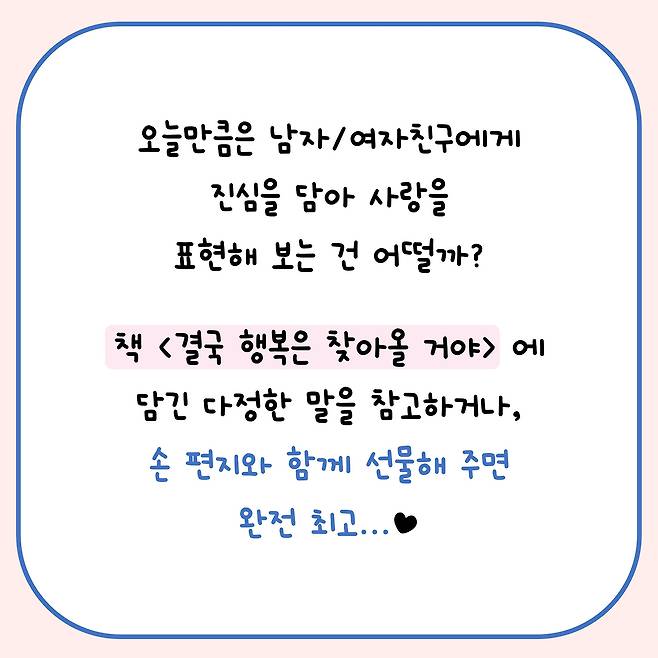 오늘만큼은 남자/여자친구에게
진심을 담아 사랑을
표현해 보는 건 어떨까?
책 <결국 행복은 찾아올 거야> 에
담긴 다정한 말을 참고하거나,
손 편지와 함께 선물해 주면
완전 최고...♥